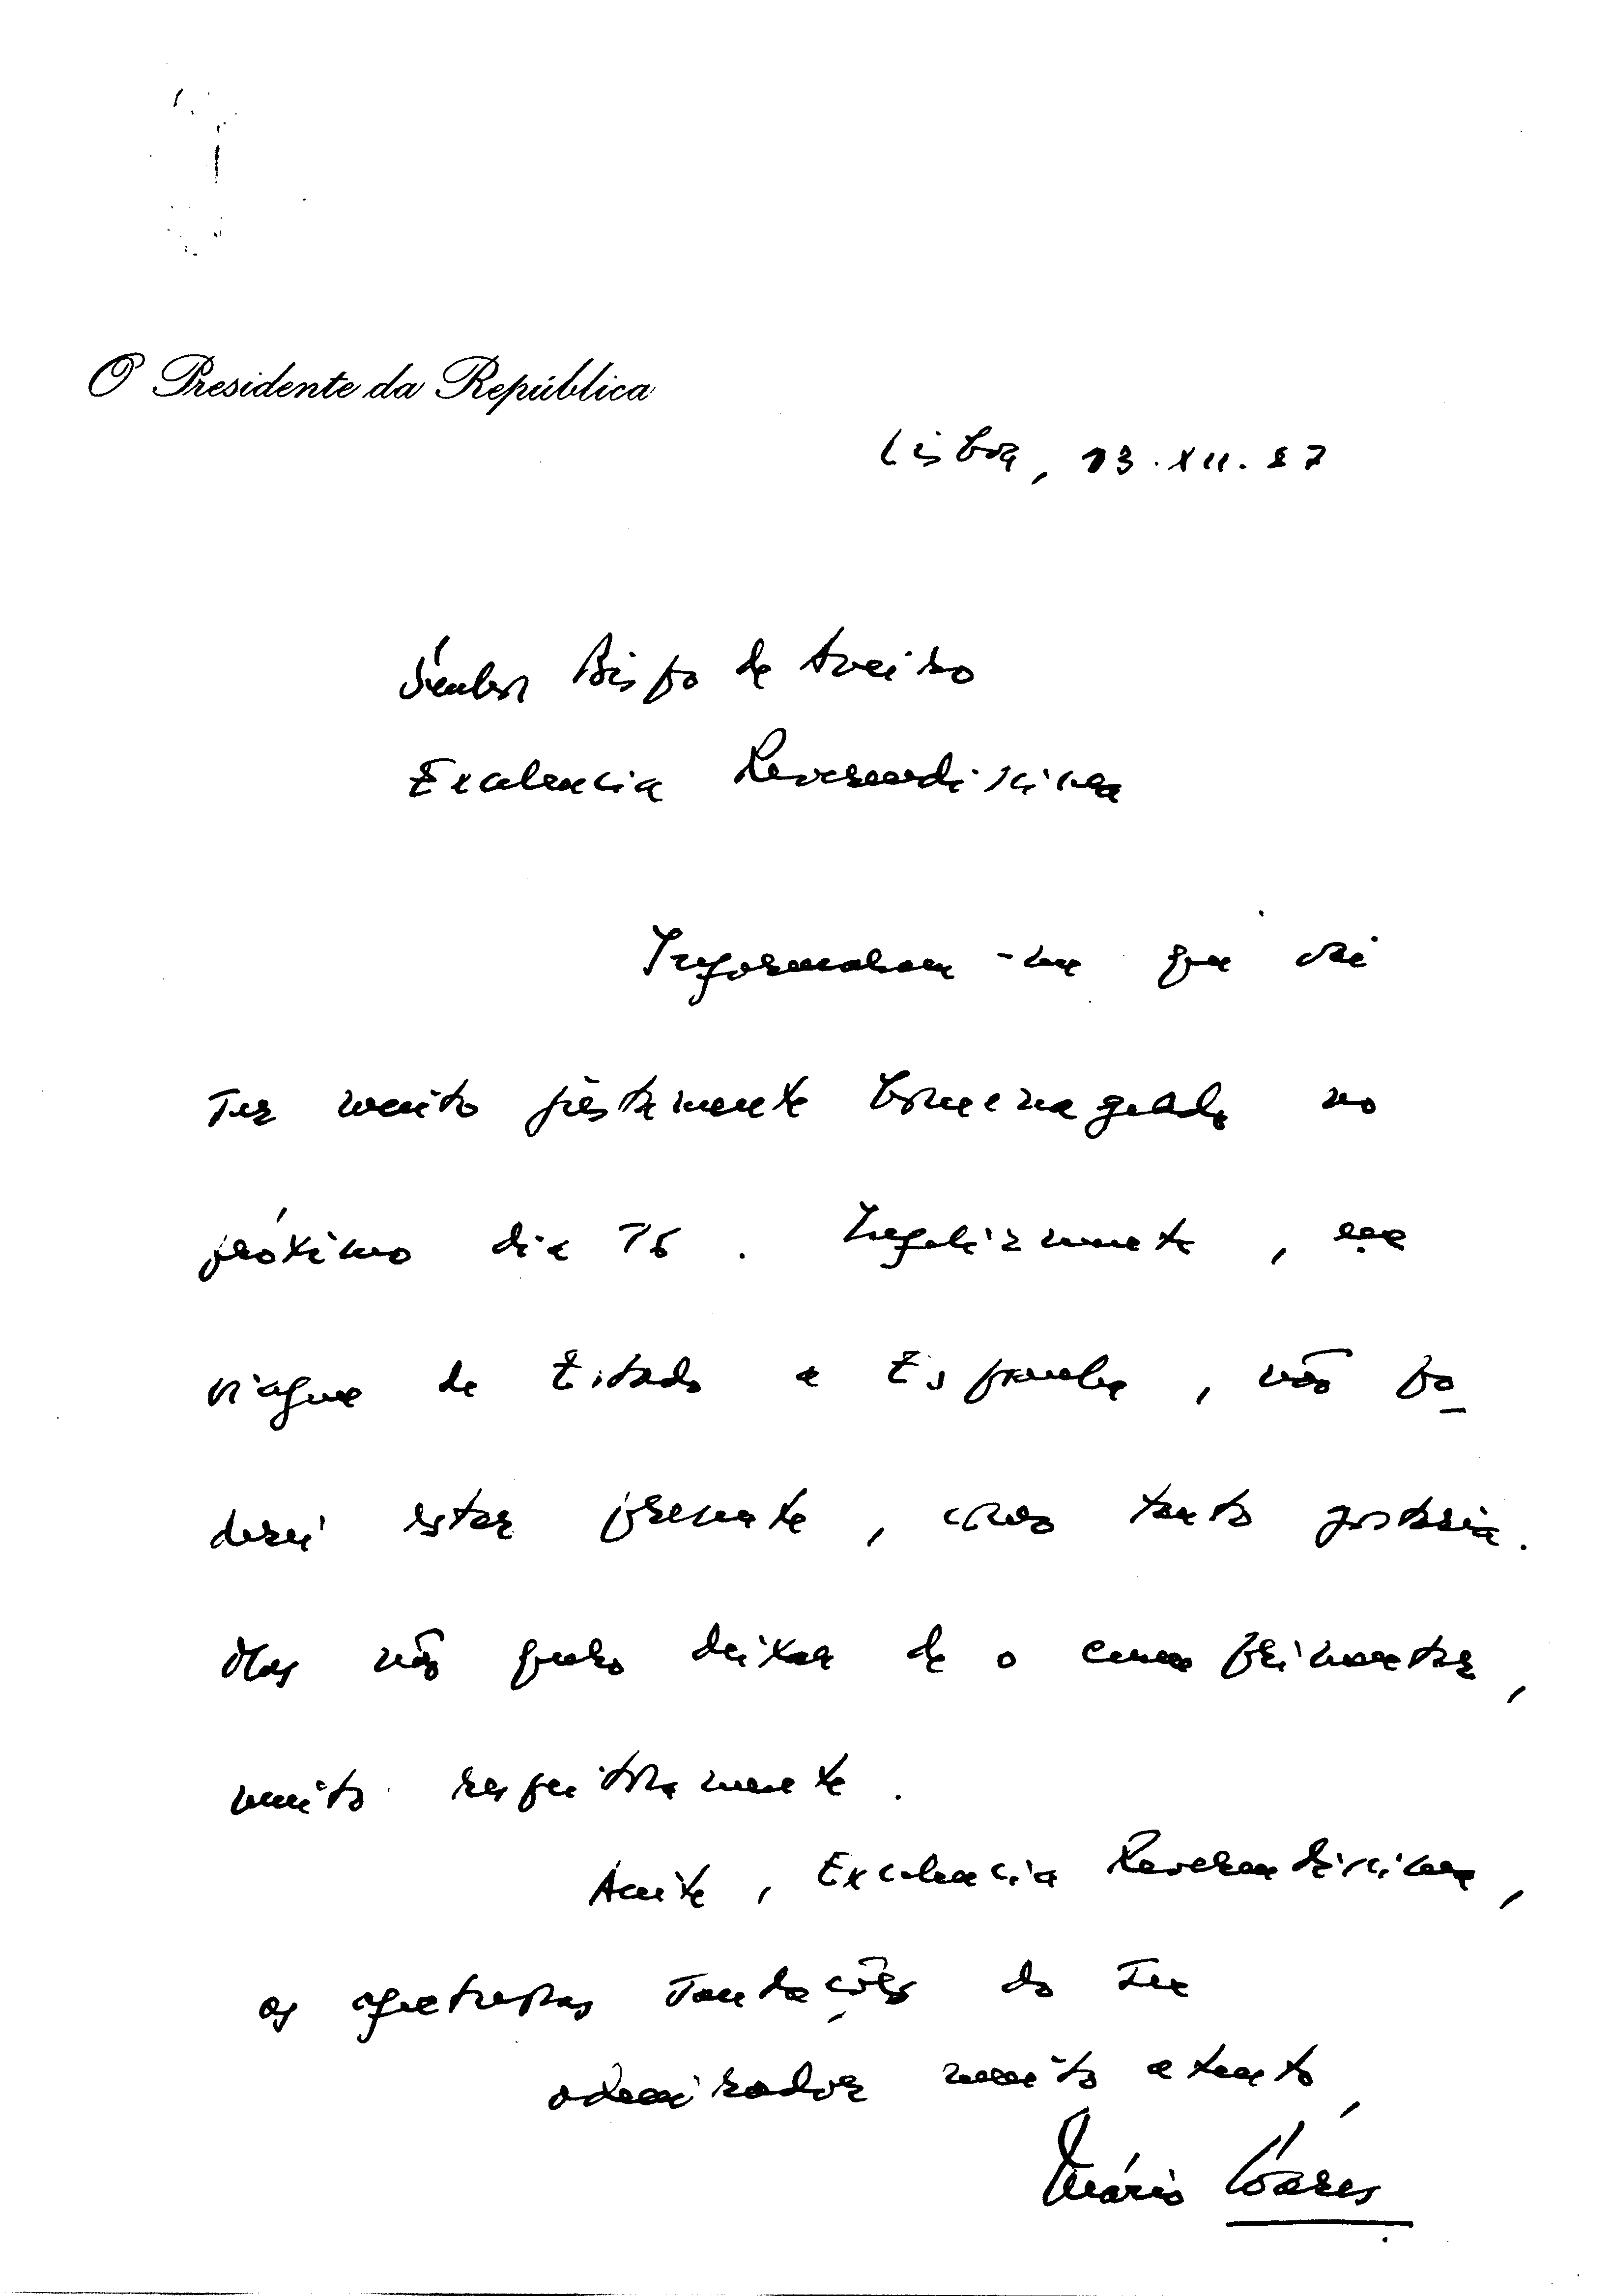 O Presidente da República
Lisboa, 13.XII.87
Senhor Bispo de Aveiro
Excelencia Reverendissima
Informaram-me que vai
ser muito justamente homenageado no
próximo dia 16. Infelizmente, em
viagem de Estado a Espanha, não po
derei estar presente, como tanto gostaria.
Mas não quero deixar de o cumprimentar,
muito respeitosamente.
Aceite, Excelencia Reverendissima,
as afectuosas saudações do seu
admirador muito atento,
Mário Soares